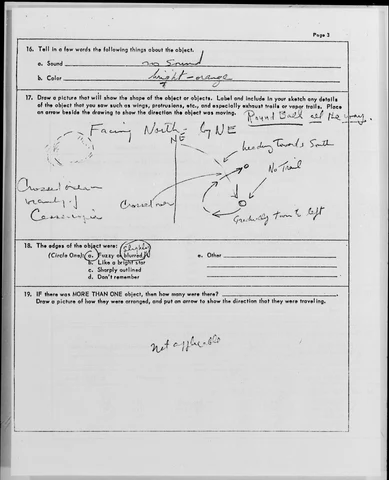 Page 3
16. Tell in a few words the following things about the object.
a. Sound no sound
b. Color bright-orange
17. Draw a picture that will show the shape of the object or objects. Label and include in your sketch any details
of the object that you saw such as wings, protrusions, etc., and especially exhaust trails or vapor trails. Place
an arrow beside the drawing to show the direction the object was moving. Round Ball all the way.
Facing North - by NE
NE
heading towards South
No Trail
Crossed over
Crossed over
Cassiopia
Gradually turn to left
18. The edges of the object were:
(Circle One): a. Fuzzy or blurred slightly
b. Like a bright star
c. Sharply outlined
d. Don't remember
e. Other
19. IF there was MORE THAN ONE object, then how many were there?
Draw a picture of how they were arranged, and put an arrow to show the direction that they were traveling.
Not applicable